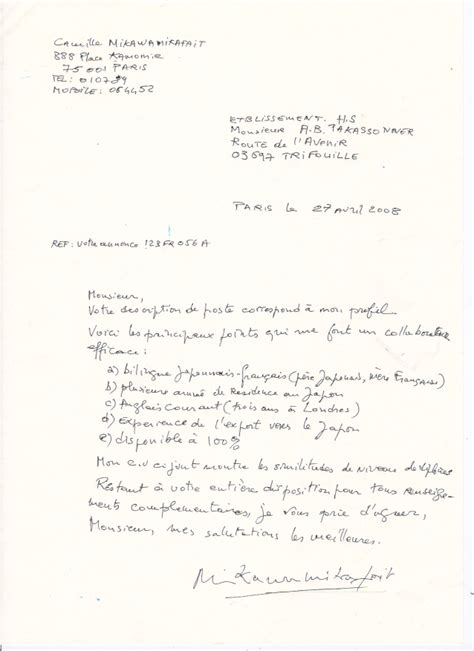 Camille MIKAWAMIKAFAIT
888 Place KANOMIE
75001 PARIS
TEL: 010729
MOBILE: 064452
ETBLISSEMENT. H.S
Monsieur A.B. TAKASSONNER
Route de l'Avenir
03697 TRIFOUILLE
PARIS le 27 avril 2008
REF: votre annonce 123FR056A
Monsieur,
Votre description de poste correspond à mon profil.
Voici les principaux points qui me font un collaborateur
efficace:
a) bilingue Japonnais-français (père Japonais, mère Française)
b) plusieurs année de Residence au Japon
c) Anglais courant (trois ans à Londres)
d) Experience de l'export vers le Japon
e) disponible à 100%
Mon c.v ci joint montre les similitudes de niveaux de
Restant à votre entière disposition pour tous renseigne-
ments complementaires, je vous prie d'agréer,
Monsieur, mes salutations les meilleures.
Mikawamikafait